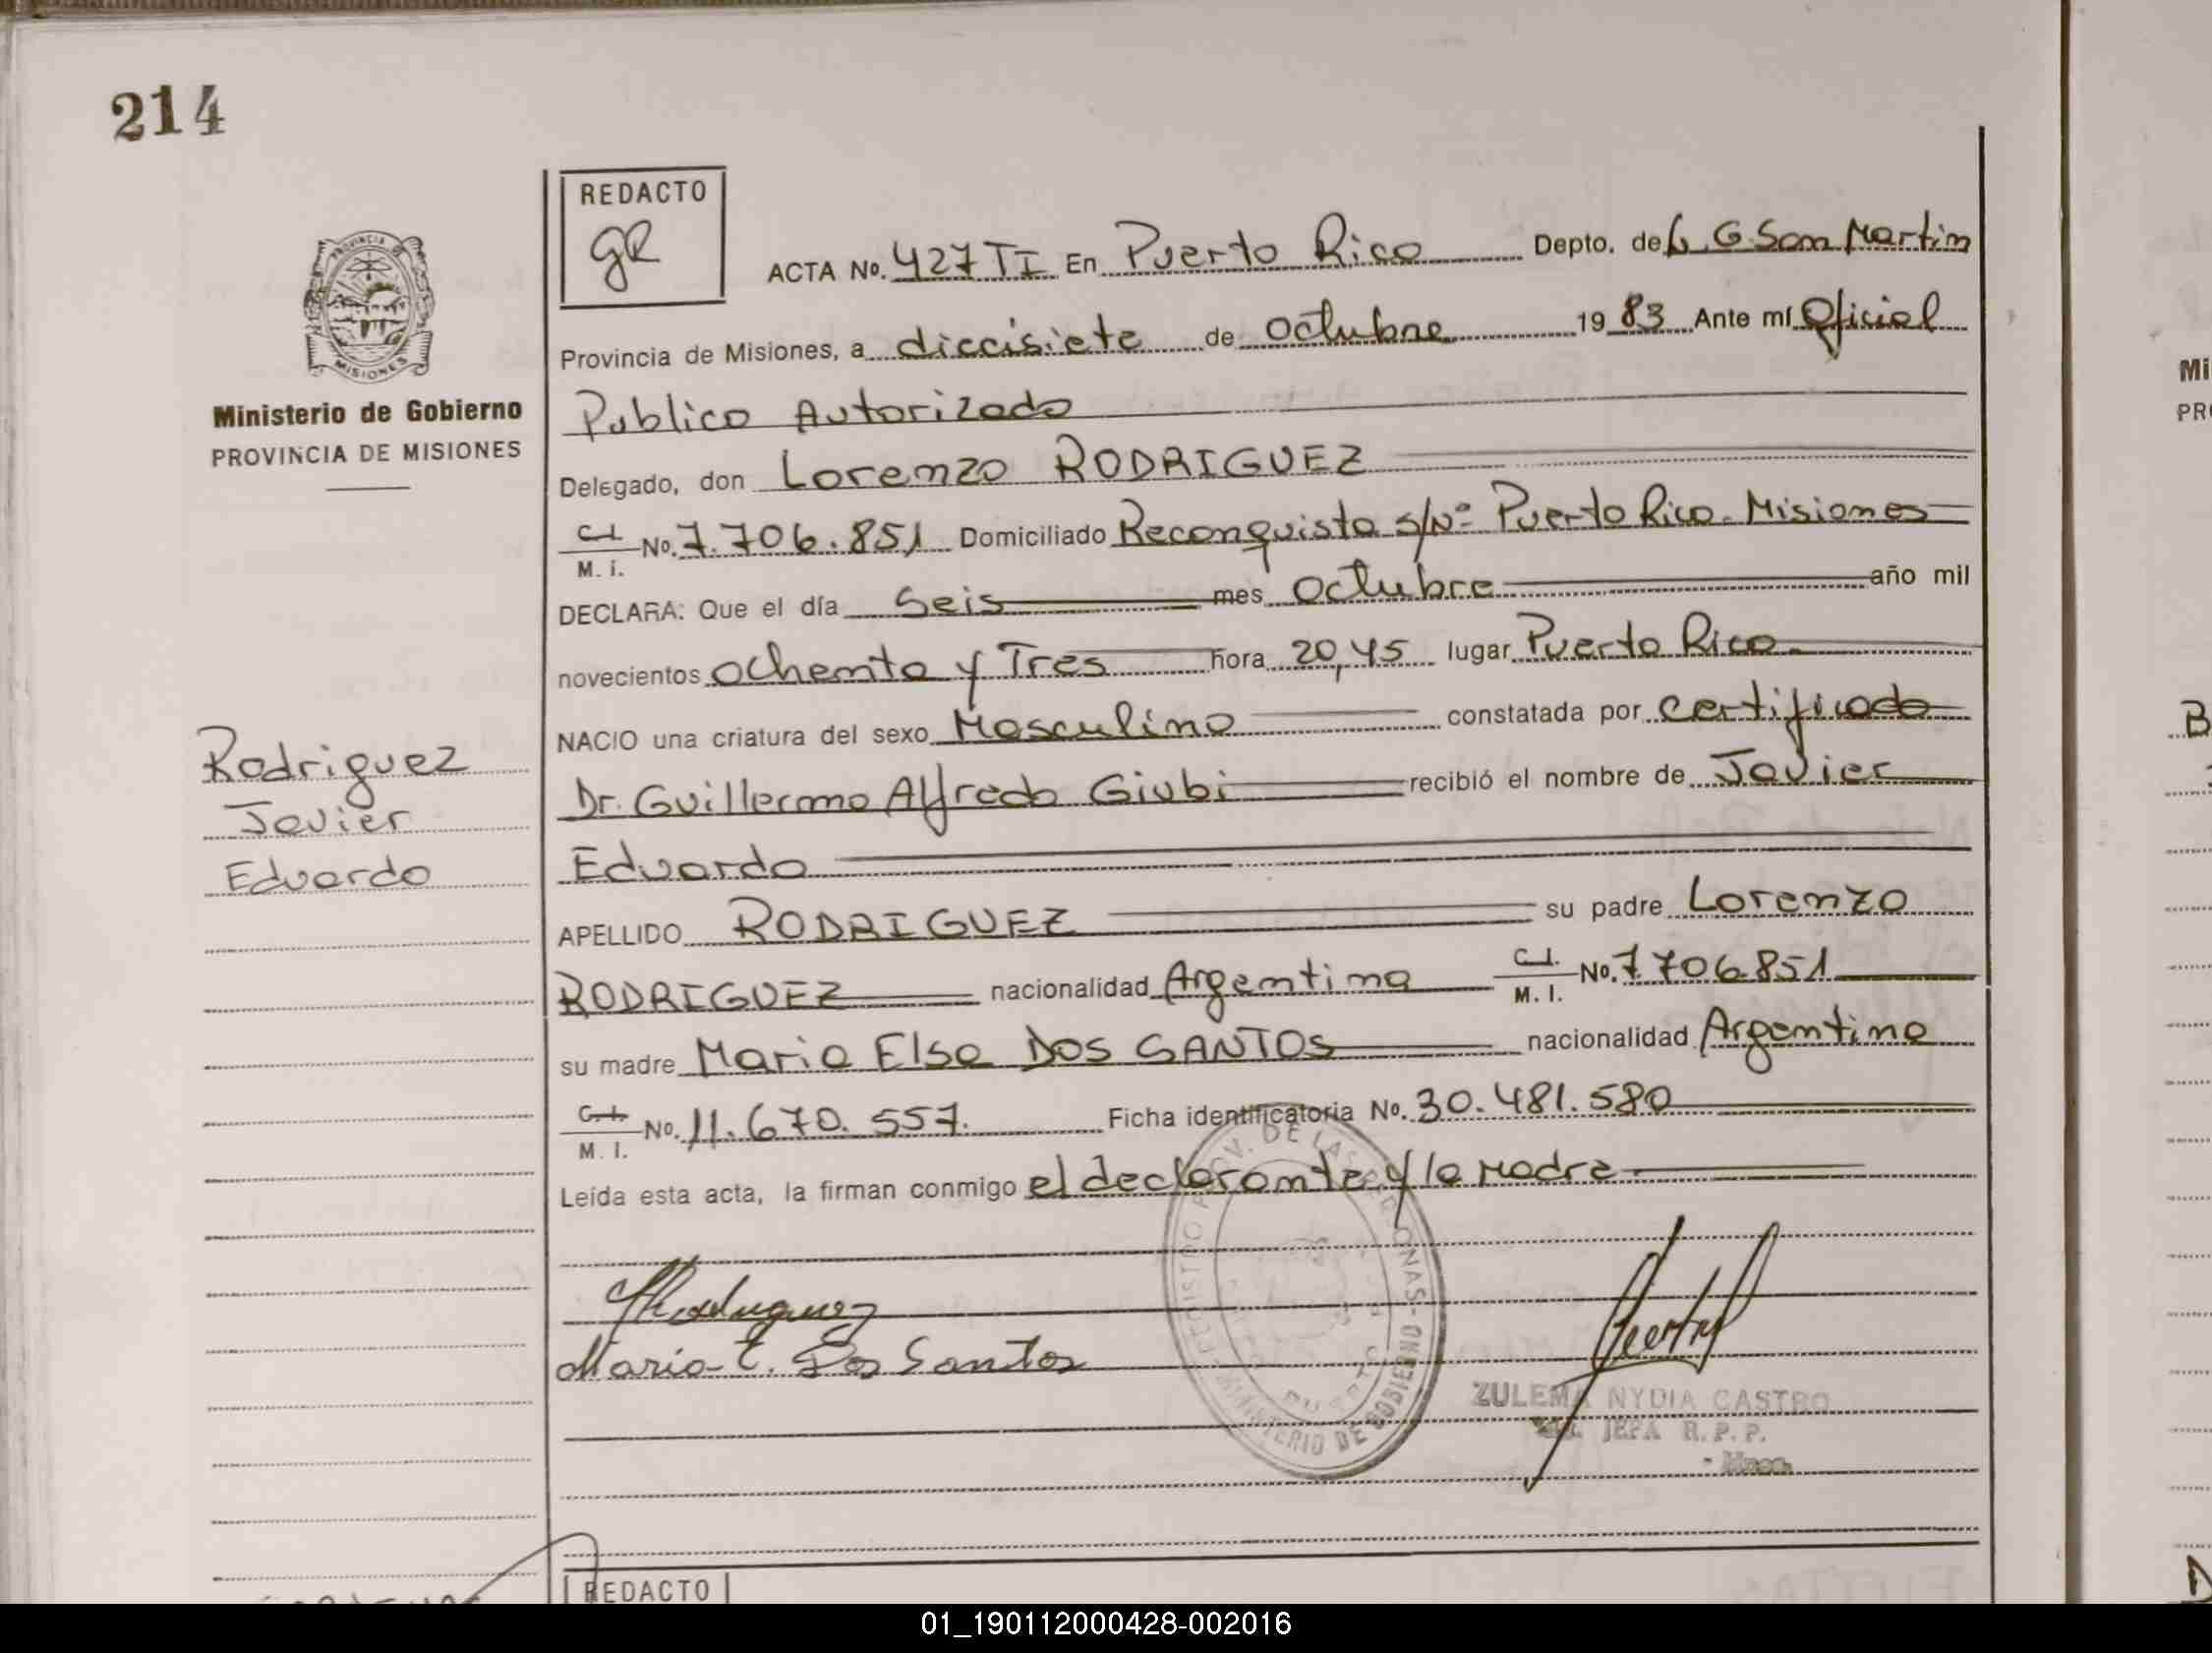 214
REDACTO
gR
ACTA No. 427 TI En Puerto Rico Depto. de L. G. San Martin
Provincia de Misiones, a diecisiete de Octubre 1983 Ante mí Oficial
Publico Autorizado
Delegado, don Lorenzo RODRIGUEZ
C.I. M. I. No. 7.706.851 Domiciliado Reconquista S/Nº Puerto Rico - Misiones
DECLARA: Que el día Seis mes Octubre año mil
novecientos Ochenta y Tres hora 20,45 lugar Puerto Rico
NACIO una criatura del sexo Masculino constatada por certificado
Dr. Guillermo Alfredo Giubi recibió el nombre de Javier
Eduardo
APELLIDO RODRIGUEZ su padre Lorenzo
RODRIGUEZ nacionalidad Argentina C.I. M. I. No. 7.706.851
su madre Maria Elsa DOS SANTOS nacionalidad Argentina
C.I. M. I. No. 11.670.557. Ficha identificatoria No. 30.481.580
Leída esta acta, la firman conmigo el declarante y la Madre
Maria E. Dos Santos
ZULEMA NYDIA CASTRO
JEFA R.P.P.
PROVINCIA DE
MISIONES
Ministerio de Gobierno
PROVINCIA DE MISIONES
Rodriguez
Javier
Eduardo
MINISTERIO DE GOBIERNO
REDACTO
Mi
PR
B
D
01_190112000428-002016